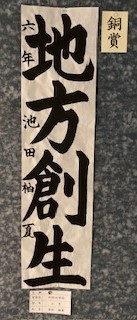 銅賞
地方創生
六年 池田柚夏